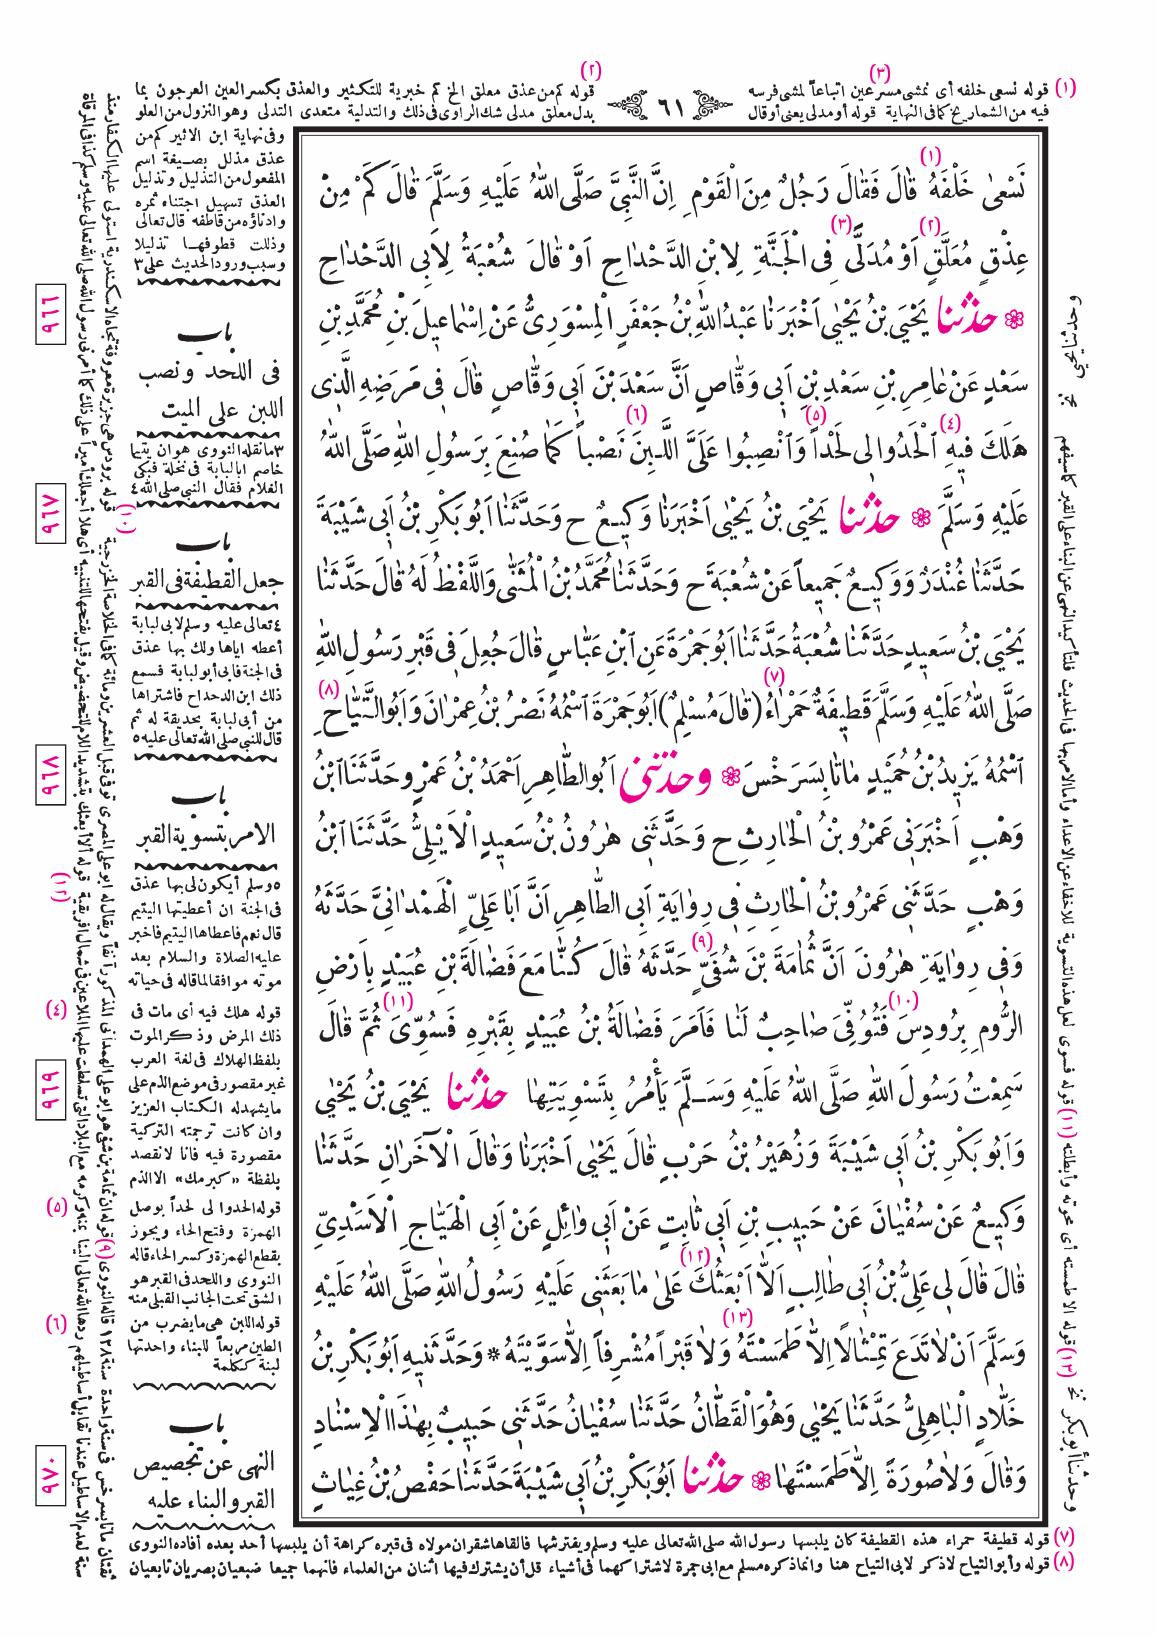 (١) قوله نسعى خلفه أى نمشى مسرعين اتباعاً لمشى فرسه (٣)
فيه من الشماريخ كما فى النهاية قوله أو مدلى يعنى أو قال
٦١
(٢) قوله كم من عذق معلق الخ كم خبرية للتكثير والعذق بكسر العين العرجون بما
بدل معلق مدلى شك الراوى فى ذلك والتدلية متعدى التدلى وهو النزول من العلو
نَسْعىٰ خَلْفَهُ (١) قَالَ فَقَالَ رَجُلٌ مِنَ الْقَوْمِ إِنَّ النَّبِيَّ صَلَّى اللهُ عَلَيْهِ وَسَلَّمَ قَالَ كَمْ مِنْ
عِذْقٍ مُعَلَّقٍ (٢) أَوْ مُدَلًّى (٣) فِى الْجَنَّةِ لِابْنِ الدَّحْدَاحِ أَوْ قَالَ شُعْبَةُ لِأَبِى الدَّحْدَاحِ
❁ حدّثنا يَحْيَى بْنُ يَحْيٰى أَخْبَرَنَا عَبْدُ اللهِ بْنُ جَعْفَرٍ الْمِسْوَرِىُّ عَنْ إِسْمَاعِيلَ بْنِ مُحَمَّدِ بْنِ
سَعْدٍ عَنْ عَامِرِ بْنِ سَعْدِ بْنِ أَبِى وَقَّاصٍ أَنَّ سَعْدَ بْنَ أَبِى وَقَّاصٍ قَالَ فِى مَرَضِهِ الَّذِى
هَلَكَ فِيهِ (٤) اَلْحَدُوا لِى لَحْداً (٥) وَانْصِبُوا عَلَىَّ اللَّبِنَ (٦) نَصْباً كَمَا صُنِعَ بِرَسُولِ اللهِ صَلَّى اللهُ
عَلَيْهِ وَسَلَّمَ ❁ حدّثنا يَحْيَى بْنُ يَحْيٰى أَخْبَرَنَا وَكِيعٌ ح وَحَدَّثَنَا أَبُو بَكْرِ بْنُ أَبِى شَيْبَةَ
حَدَّثَنَا غُنْدَرٌ وَوَكِيعٌ جَمِيعاً عَنْ شُعْبَةَ ح وَحَدَّثَنَا مُحَمَّدُ بْنُ الْمُثَنّٰى وَاللَّفْظُ لَهُ قَالَ حَدَّثَنَا
يَحْيَى بْنُ سَعِيدٍ حَدَّثَنَا شُعْبَةُ حَدَّثَنَا أَبُو جَمْرَةَ عَنِ ابْنِ عَبَّاسٍ قَالَ جُعِلَ فِى قَبْرِ رَسُولِ اللهِ
صَلَّى اللهُ عَلَيْهِ وَسَلَّمَ قَطِيفَةٌ حَمْرَاءُ (٧) (قَالَ مُسْلِمٌ) أَبُو جَمْرَةَ اسْمُهُ نَصْرُ بْنُ عِمْرَانَ وَأَبُو التَّيَّاحِ (٨)
اسْمُهُ يَزِيدُ بْنُ حُمَيْدٍ مَاتَا بِسَرَخْسَ ❁ وحدّثنى أَبُو الطَّاهِرِ أَحْمَدُ بْنُ عَمْرٍو حَدَّثَنَا ابْنُ
وَهْبٍ أَخْبَرَنِى عَمْرُو بْنُ الْحَارِثِ ح وَحَدَّثَنِى هٰرُونُ بْنُ سَعِيدٍ الْأَيْلِىُّ حَدَّثَنَا ابْنُ
وَهْبٍ حَدَّثَنِى عَمْرُو بْنُ الْحَارِثِ فِى رِوَايَةِ أَبِى الطَّاهِرِ أَنَّ أَبَا عَلِىٍّ الْهَمْدَانِىَّ حَدَّثَهُ
وَفِى رِوَايَةِ هٰرُونَ أَنَّ ثُمَامَةَ بْنَ شُفَىٍّ (٩) حَدَّثَهُ قَالَ كُنَّا مَعَ فَضَالَةَ بْنِ عُبَيْدٍ بِأَرْضِ
الرُّومِ بِرُودِسَ (١٠) فَتُوُفِّىَ صَاحِبٌ لَنَا فَأَمَرَ فَضَالَةُ بْنُ عُبَيْدٍ بِقَبْرِهِ فَسُوِّىَ (١١) ثُمَّ قَالَ
سَمِعْتُ رَسُولَ اللهِ صَلَّى اللهُ عَلَيْهِ وَسَلَّمَ يَأْمُرُ بِتَسْوِيَتِهَا حدّثنا يَحْيَى بْنُ يَحْيٰى
وَأَبُو بَكْرِ بْنُ أَبِى شَيْبَةَ وَزُهَيْرُ بْنُ حَرْبٍ قَالَ يَحْيٰى أَخْبَرَنَا وَقَالَ الْآخَرَانِ حَدَّثَنَا
وَكِيعٌ عَنْ سُفْيَانَ عَنْ حَبِيبِ بْنِ أَبِى ثَابِتٍ عَنْ أَبِى وَائِلٍ عَنْ أَبِى الْهَيَّاجِ الْأَسَدِىِّ
قَالَ قَالَ لِى عَلِىُّ بْنُ أَبِى طَالِبٍ أَلَّا أَبْعَثُكَ (١٢) عَلىٰ مَا بَعَثَنِى عَلَيْهِ رَسُولُ اللهِ صَلَّى اللهُ عَلَيْهِ
وَسَلَّمَ أَنْ لَا تَدَعَ تِمْثَالًا إِلَّا طَمَسْتَهُ (١٣) وَلَا قَبْراً مُشْرِفاً إِلَّا سَوَّيْتَهُ * وَحَدَّثَنِيهِ أَبُو بَكْرِ بْنُ
خَلَّادٍ الْبَاهِلِىُّ حَدَّثَنَا يَحْيٰى وَهُوَ الْقَطَّانُ حَدَّثَنَا سُفْيَانُ حَدَّثَنِى حَبِيبٌ بِهٰذَا الْإِسْنَادِ
وَقَالَ وَلَا صُورَةً إِلَّا طَمَسْتَهَا ❁ حدّثنا أَبُو بَكْرِ بْنُ أَبِى شَيْبَةَ حَدَّثَنَا حَفْصُ بْنُ غِيَاثٍ
وفى نهاية ابن الاثير كم من
عذق مذلل بصيغة اسم
المفعول من التذليل وتذليل
العذق تسهيل اجتناء ثمره
وادناؤه من قاطفه قال تعالى
وذللت قطوفها تذليلا
وسبب ورود الحديث على ٣
باب
فى اللحد ونصب
اللبن على الميت
٣ مانقله النووى هو ان يتيما
خاصم ابالبابة فى نخلة فبكى
الغلام فقال النبى صلى الله ٤
باب
جعل القطيفة فى القبر
٤ تعالى عليه وسلم لابى لبابة
أعطه اياها ولك بها عذق
فى الجنة فابى أبو لبابة فسمع
ذلك ابن الدحداح فاشتراها
من أبى لبابة بحديقة له ثم
قال للنبى صلى الله تعالى عليه ٥
باب
الامر بتسوية القبر
٥ وسلم أيكون لى بها عذق
فى الجنة ان أعطيتها اليتيم
قال نعم فاعطاها اليتيم فاخبر
عليه الصلاة والسلام بعد
موته موافقا لما قاله فى حياته
(٤) قوله هلك فيه أى مات فى
ذلك المرض وذكر الموت
بلفظ الهلاك فى لغة العرب
غير مقصور فى موضع الذم على
ما يشهد له الكتاب العزيز
وان كانت ترجمته التركية
مقصورة فيه فانا لا نقصد
بلفظة «كبرمك» الا الذم
(٥) قوله الحدوا لى لحداً بوصل
الهمزة وفتح الحاء ويجوز
بقطع الهمزة وكسر الحاء قاله
النووى واللحد فى القبر هو
الشق تحت الجانب القبلى منه
(٦) قوله اللبن هى ما يضرب من
الطين مربعاً للبناء واحدتها
لبنة ككلمة
باب
النهى عن تجصيص
القبر والبناء عليه
٩٦٦
٩٦٧
٩٦٨
٩٦٩
٩٨٠
(٧) قوله قطيفة حمراء هذه القطيفة كان يلبسها رسول الله صلى الله تعالى عليه وسلم ويفترشها فالقاها شقران مولاه فى قبره كراهة أن يلبسها أحد بعده أفاده النووى
(٨) قوله وأبو التياح لا ذكر لابى التياح هنا وانما ذكره مسلم مع ابى جمرة لاشتراكهما فى أشياء قل أن يشترك فيها أثنان من العلماء فانهما جميعا ضبعيان بصريان تابعيان